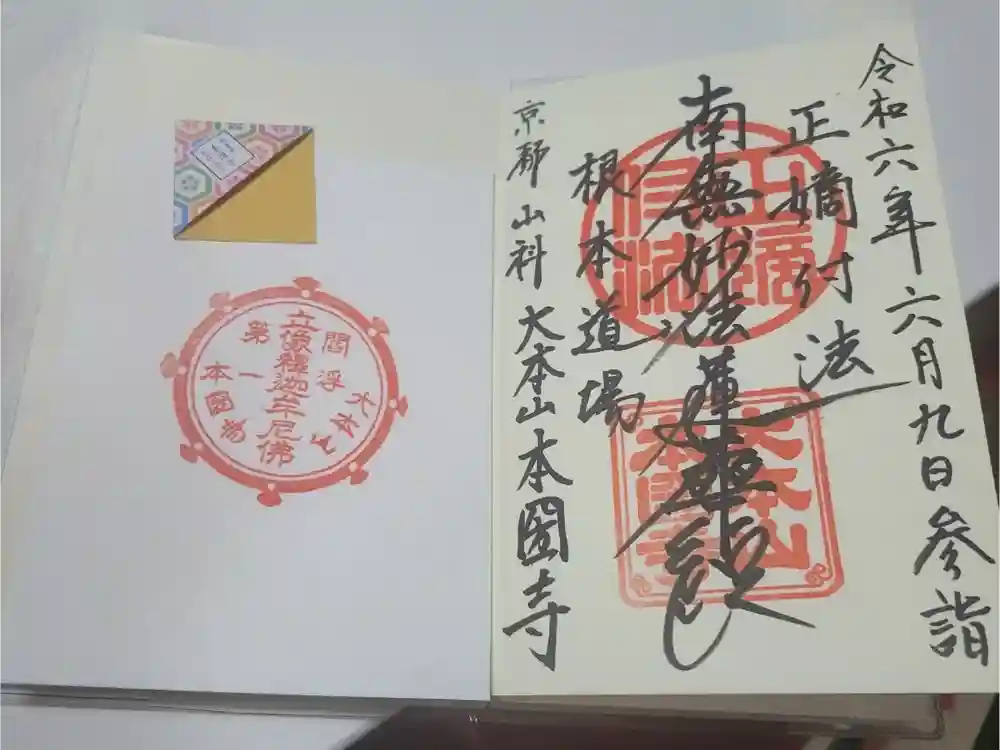 令和六年六月九日参詣
正嫡付法
南無妙法蓮華経
根本道場
京都山科大本山本圀寺
正嫡付法
大本山本圀寺
閻浮第一
立像釋迦牟尼佛
大本山
本圀寺